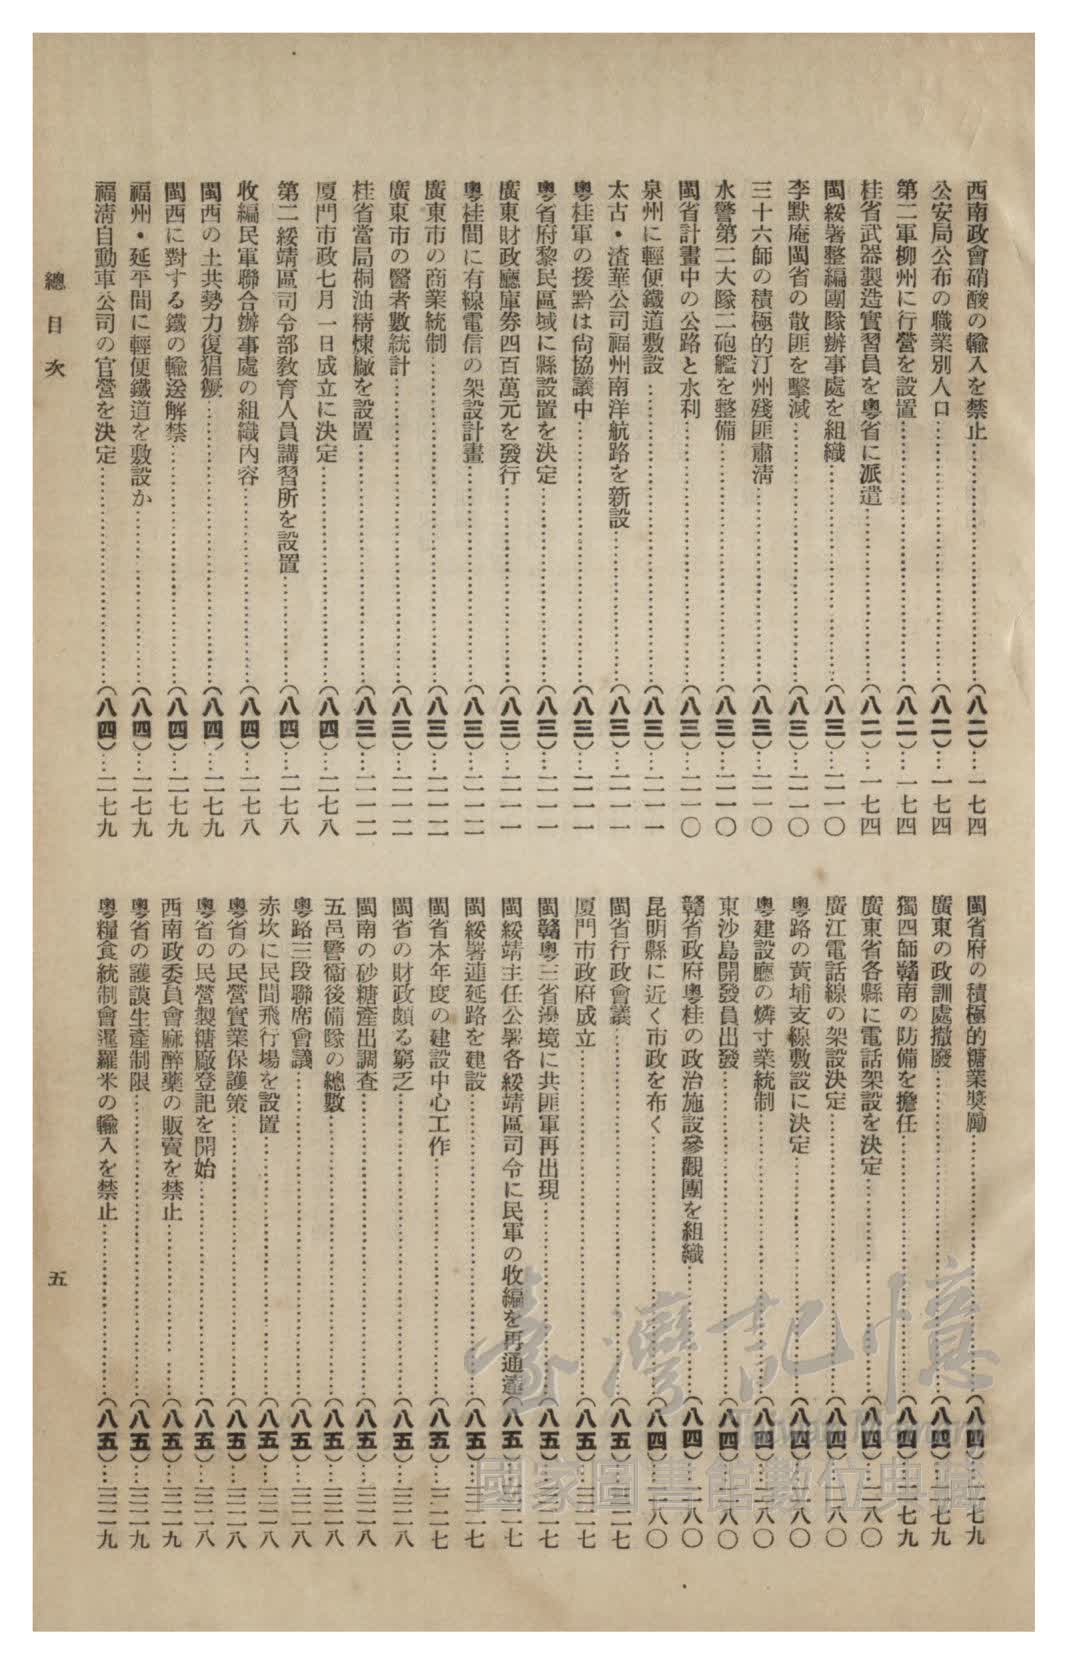 西南政會硝酸の輸入を禁止……(八二)…一七四
公安局公布の職業別人口……(八二)…一七四
第二軍柳州に行營を設置……(八二)…一七四
桂省武器製造實習員を粵省に派遣……(八二)…一七四
閩綏署整編團隊辦事處を組織……(八三)…二一〇
李默庵閩省の散匪を擊滅……(八三)…二一〇
三十六師の積極的汀州殘匪肅清……(八三)…二一〇
水警第二大隊二砲艦を整備……(八三)…二一〇
閩省計畫中の公路と水利……(八三)…二一〇
泉州に輕便鐵道敷設……(八三)…二一一
太古・渣華公司福州南洋航路を新設……(八三)…二一一
粵桂軍の援黔は尙協議中……(八三)…二一一
粵省府黎民區域に縣設置を決定……(八三)…二一一
廣東財政廳庫券四百萬元を發行……(八三)…二一一
粵桂間に有線電信の架設計畫……(八三)…二一二
廣東市の商業統制……(八三)…二一二
廣東市の醫者數統計……(八三)…二一二
桂省當局桐油精煉廠を設置……(八三)…二一二
厦門市政七月一日成立に決定……(八四)…二七八
第二綏靖區司令部敎育人員講習所を設置……(八四)…二七八
收編民軍聯合辦事處の組織內容……(八四)…二七八
閩西の土共勢力復猖獗……(八四)…二七九
閩西に對する鐵の輸送解禁……(八四)…二七九
福州・延平間に輕便鐵道を敷設か……(八四)…二七九
福清自動車公司の官營を決定……(八四)…二七九
閩省府の積極的糖業奬勵……(八四)…二七九
廣東の政訓處撤廢……(八四)…二七九
獨四師贛南の防備を擔任……(八四)…二七九
廣東省各縣に電話架設を決定……(八四)…二八〇
廣江電話線の架設決定……(八四)…二八〇
粵路の黃埔支線敷設に決定……(八四)…二八〇
粵建設廳の燐寸業統制……(八四)…二八〇
東沙島開發員出發……(八四)…二八〇
贛省政府粵桂の政治施設參觀團を組織……(八四)…二八〇
昆明縣に近く市政を布く……(八四)…二八〇
閩省行政會議……(八五)…三二七
厦門市政府成立……(八五)…三二七
閩贛粵三省邊境に共匪軍再出現……(八五)…三二七
閩綏靖主任公署各綏靖區司令に民軍の收編を再通達……(八五)…三二七
閩綏署連延路を建設……(八五)…三二七
閩省本年度の建設中心工作……(八五)…三二七
閩省の財政頗る窮乏……(八五)…三二八
閩南の砂糖產出調查……(八五)…三二八
五邑警衞後備隊の總數……(八五)…三二八
粵路三段聯席會議……(八五)…三二八
赤坎に民間飛行場を設置……(八五)…三二八
粵省の民營實業保護策……(八五)…三二八
粵省の民營製糖廠登記を開始……(八五)…三二八
西南政委員會麻醉藥の販賣を禁止……(八五)…三二九
粵省の護謨生產制限……(八五)…三二九
粵糧食統制會暹羅米の輸入を禁止……(八五)…三二九
總目次
五
臺灣記憶
Taiwan Memory
國家圖書館數位典藏